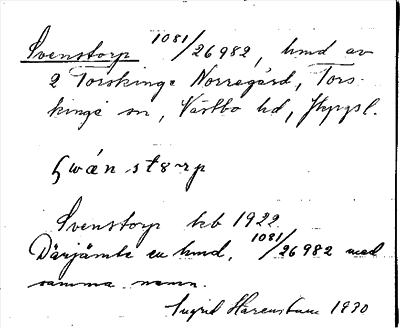 Svenstorp 1081/26982, hmd av
2 Torskinge Norregård, Tors-
kinge sn, Västbo hd, Jkpgsl.
swánstorp
Svenstorp kb 1922
Därjämte en hmd, 1081/26982 med
samma namn.
Ingrid Harenstam 1930